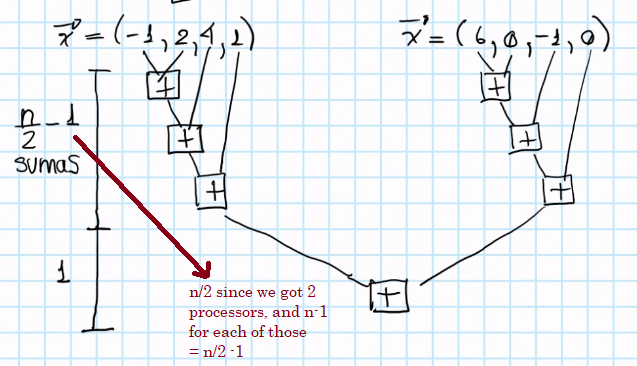 x⃗ = (-1, 2, 4, 1)
x⃗ = (6, 0, -1, 0)
+ +
n/2 - 1
+ +
sumas
+ +
1
+
n/2 since we got 2
processors, and n-1
for each of those
= n/2 -1